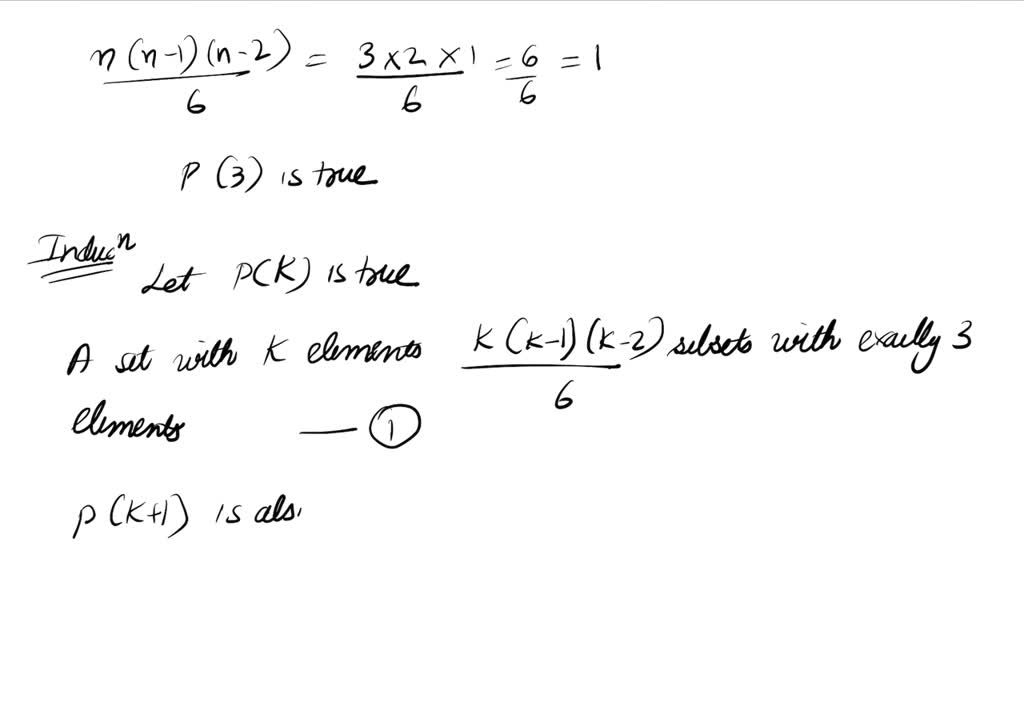 n(n-1)(n-2)/6 = 3×2×1/6 = 6/6 = 1
P(3) is true
Inducⁿ
Let P(K) is true
A set with K elements K(K-1)(K-2)/6 subsets with exactly 3
elements — ①
P(K+1) is als